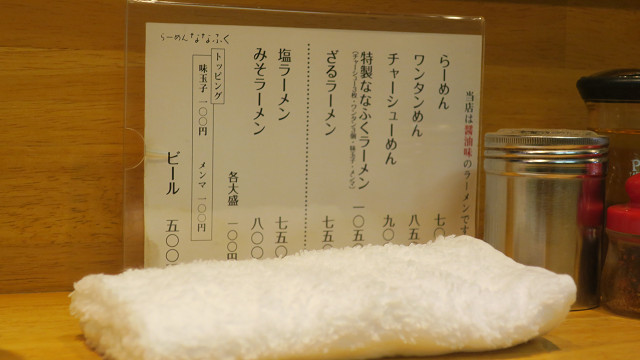 当店は醤油味のラーメンです
らーめん 七〇
ワンタンめん 八五
チャーシューめん 九〇
特製ななふくラーメン 一〇五
ざるラーメン 七五〇
塩ラーメン 七五〇
みそラーメン 八〇〇
各大盛 一〇〇円
トッピング
味玉子 一〇〇円 メンマ 一〇〇円
ビール 五〇〇
らーめん ななふく